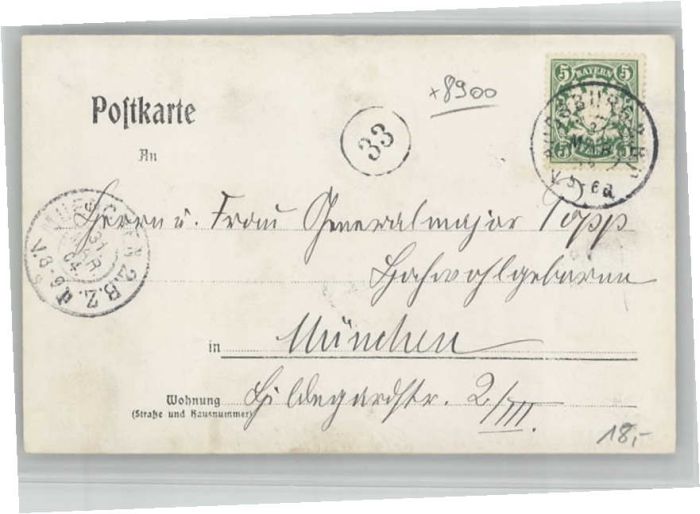 +8900
5 BAYERN 5
Postkarte
33
An
WÜRZBURG
MÜNCHEN 2.B.Z.
31
MÄR
04.
Herrn u. Frau Generalmajor Popp
Hochwohlgeboren
in München
Wohnung Hildegardstr. 2/III.
(Straße und Hausnummer)
18,-